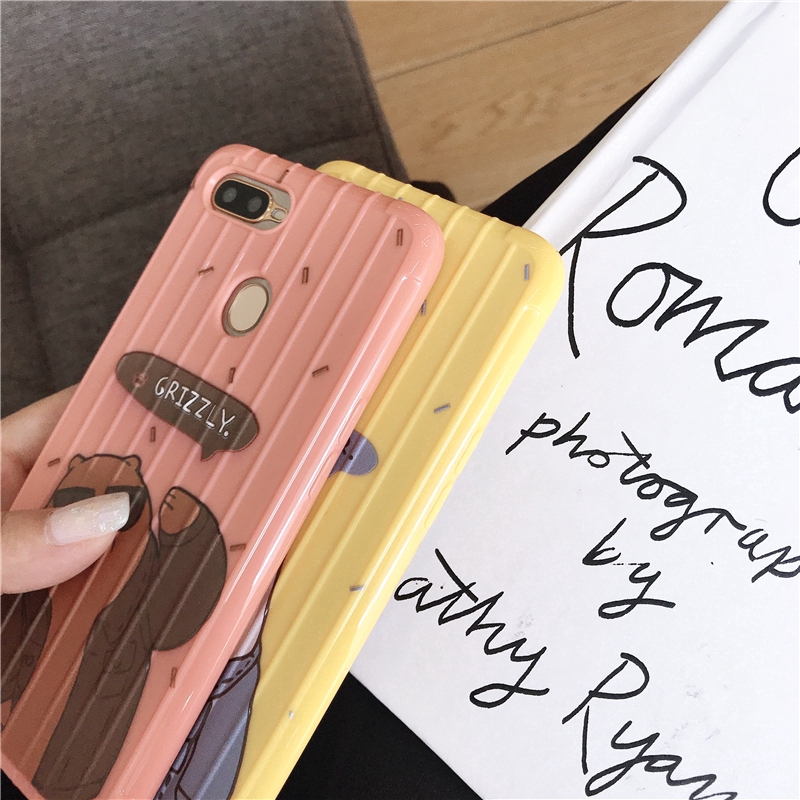 GRIZZLY.
Roma
photograp
by
athy Ryan